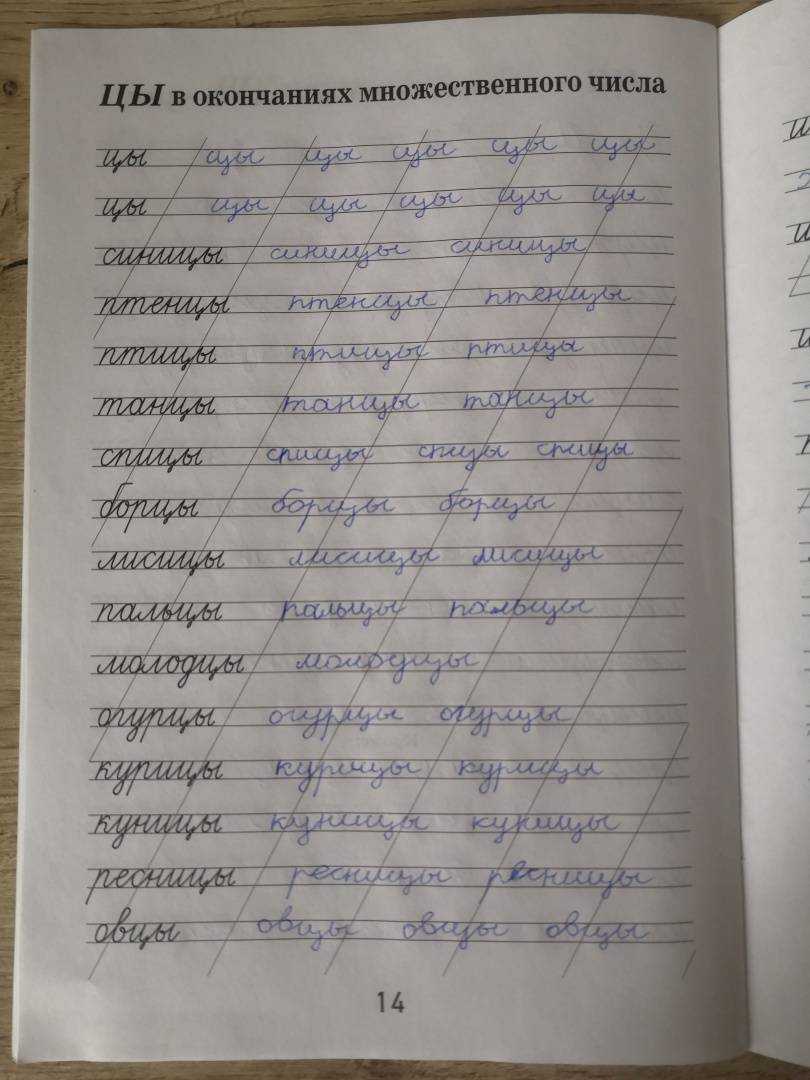 ЦЫ в окончаниях множественного числа
цы цы цы цы цы цы
цы цы цы цы цы цы
синицы синицы синицы
птенцы птенцы птенцы
птицы птицы птицы
танцы танцы танцы
спицы спицы спицы спицы
борцы борцы борцы
лисицы лисицы лисицы
пальцы пальцы пальцы
молодцы молодцы
огурцы огурцы огурцы
курицы курицы курицы
куницы куницы куницы
ресницы ресницы ресницы
овцы овцы овцы овцы
14